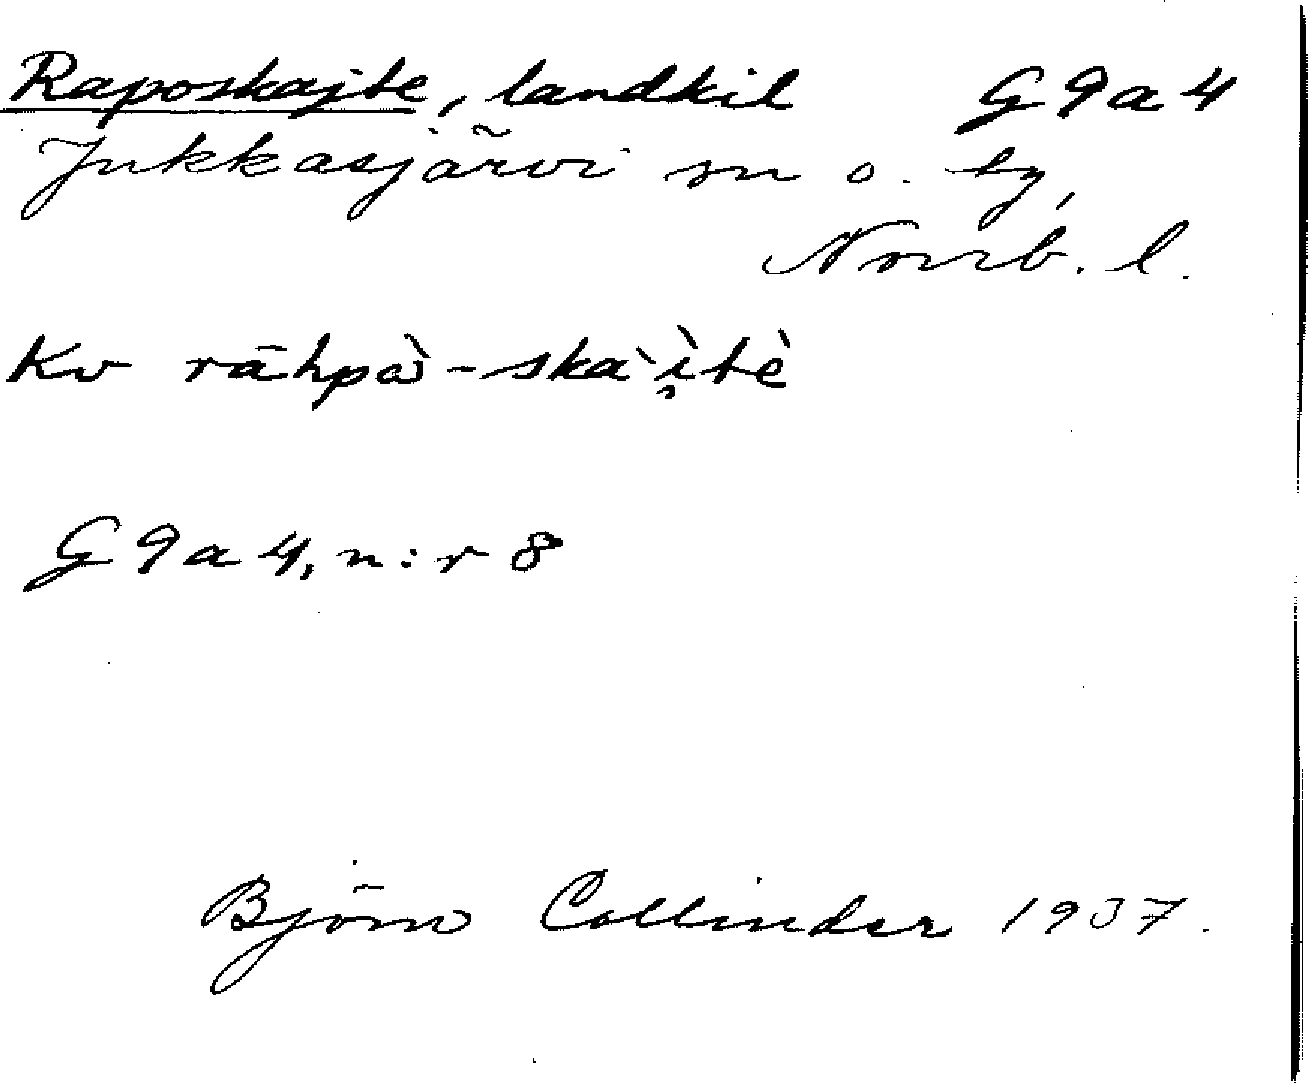 Raposkajte, landkil G9a4
Jukkasjärvi sn o. by,
Norrb. l.
Kv rāhpà-skài̯tè
G9a4, n:r 8
Björn Collinder 1937.